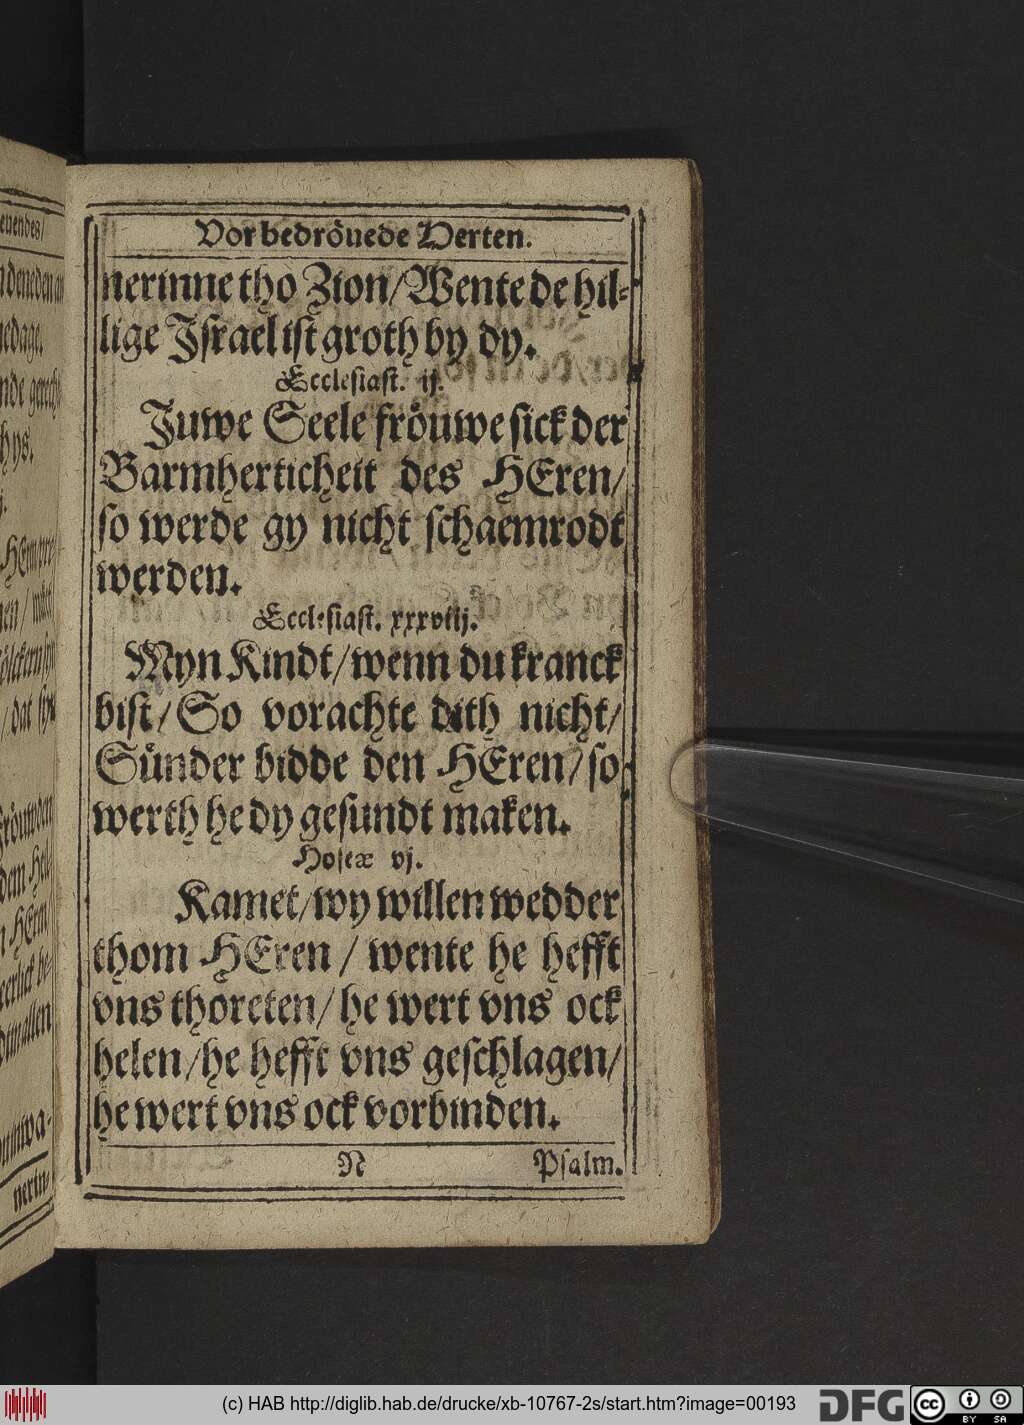 Vor bedröuede Herten.
nerinne tho Zion/ Wente de hil-
lige Israel ist groth by dy.
Ecclesiast. ij.
Juwe Seele fröuwe sick der
Barmherticheit des HEren/
so werde gy nicht schaemrodt
werden.
Ecclesiast. xxxviij.
Myn Kindt/ wenn du kranck
bist/ So vorachte dith nicht/
Sünder bidde den HEren/ so
werth he dy gesundt maken.
Hoseæ vj.
Kamet/ wy willen wedder
thom HEren / wente he hefft
vns thoreten/ he wert vns ock
helen/ he hefft vns geschlagen/
he wert vns ock vorbinden.
N Psalm.
(c) HAB http://diglib.hab.de/drucke/xb-10767-2s/start.htm?image=00193
DFG
cc BY SA